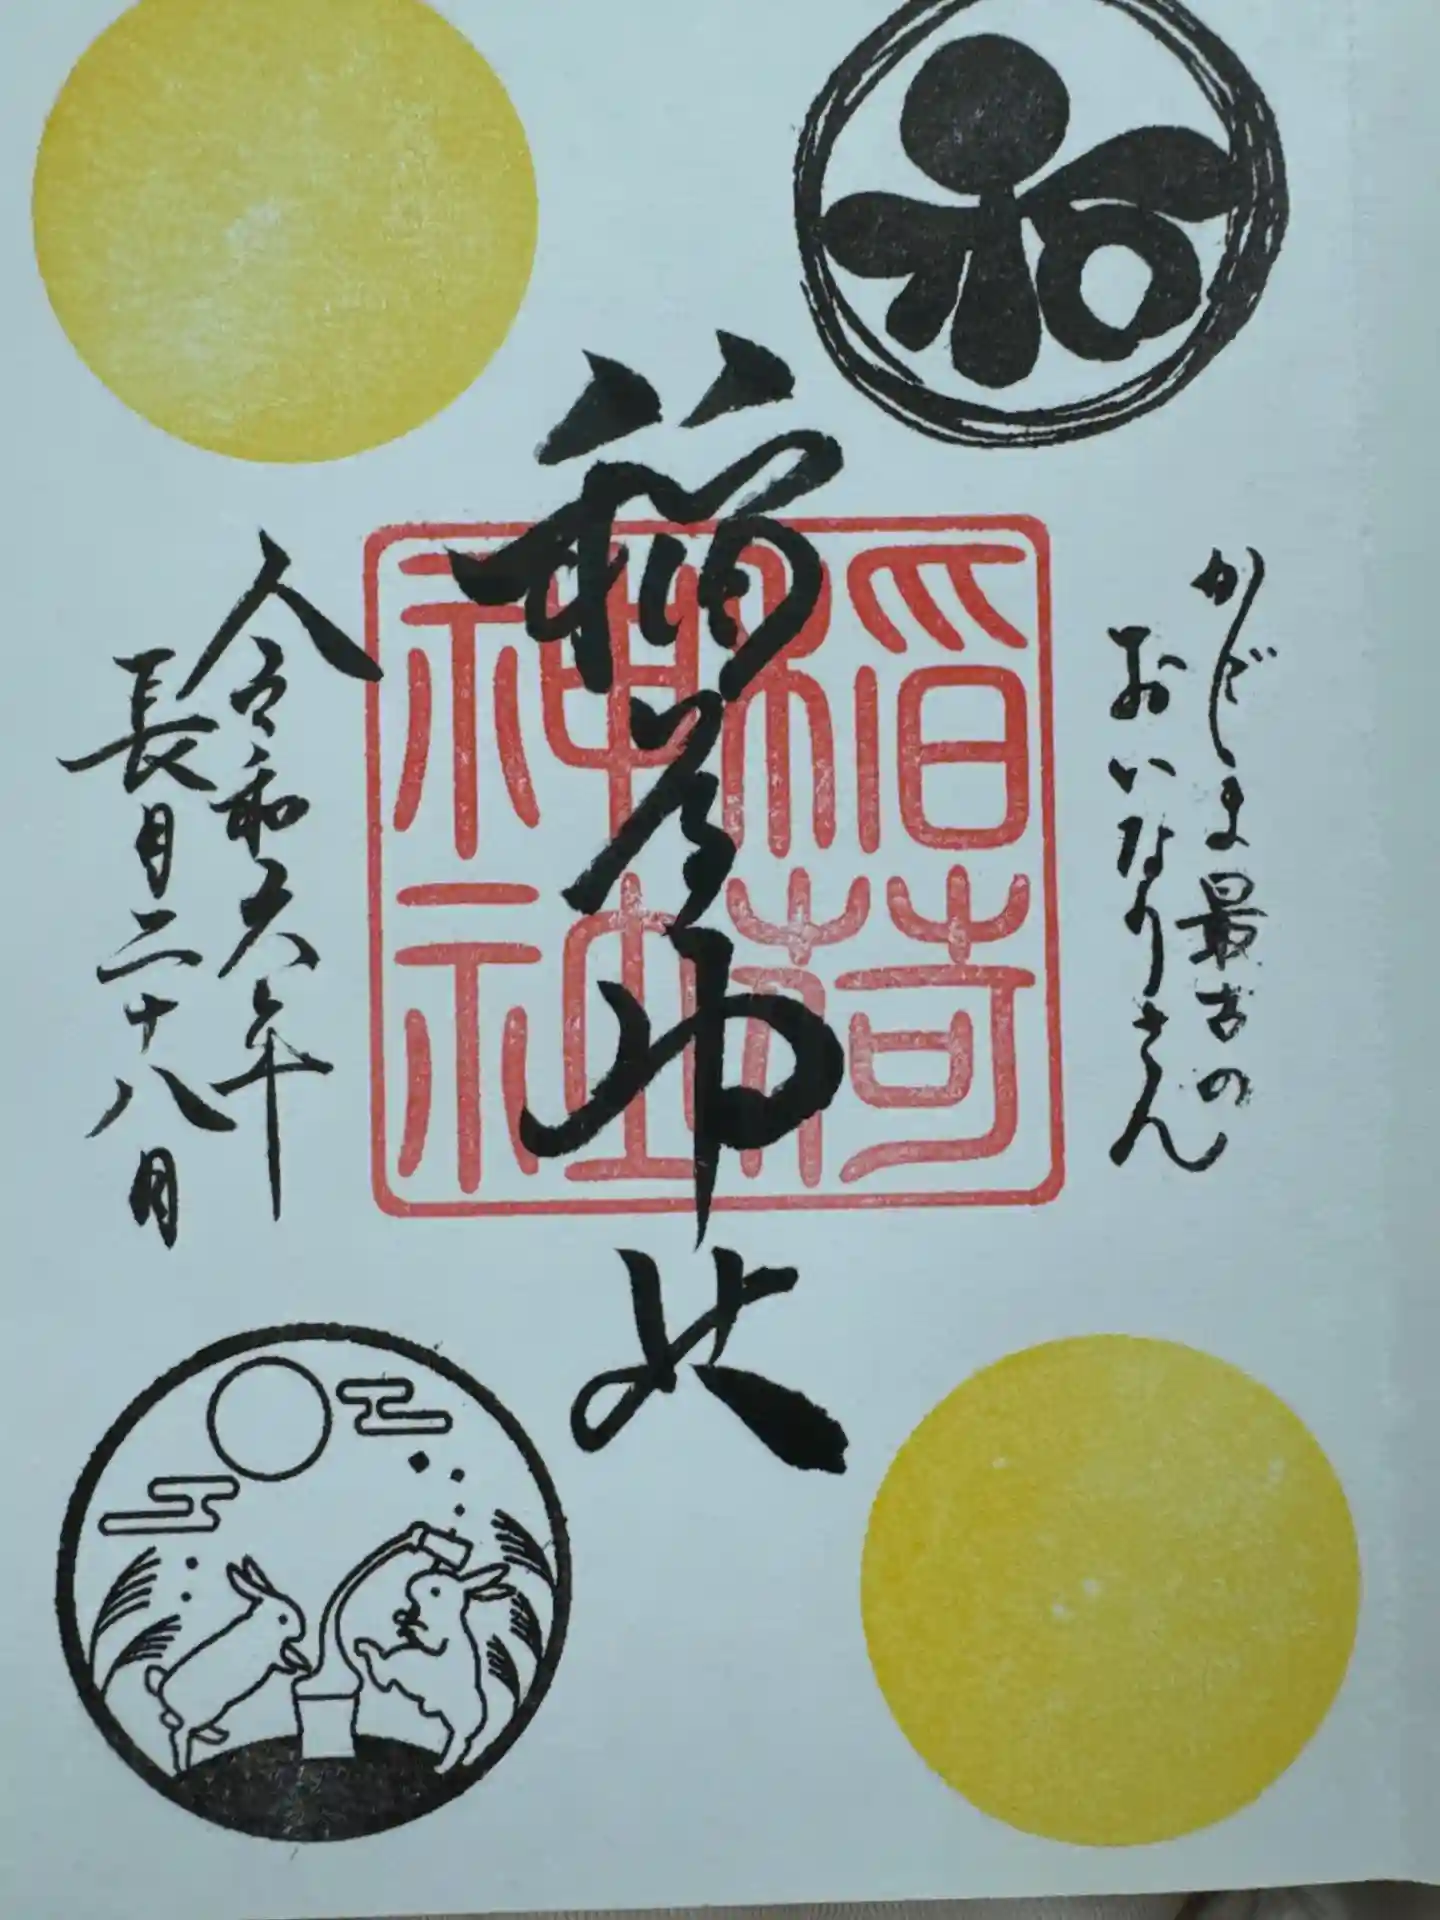 かごしま最古の
おいなりさん
稲荷神社
稲荷
神社
令和六年
長月二十八日